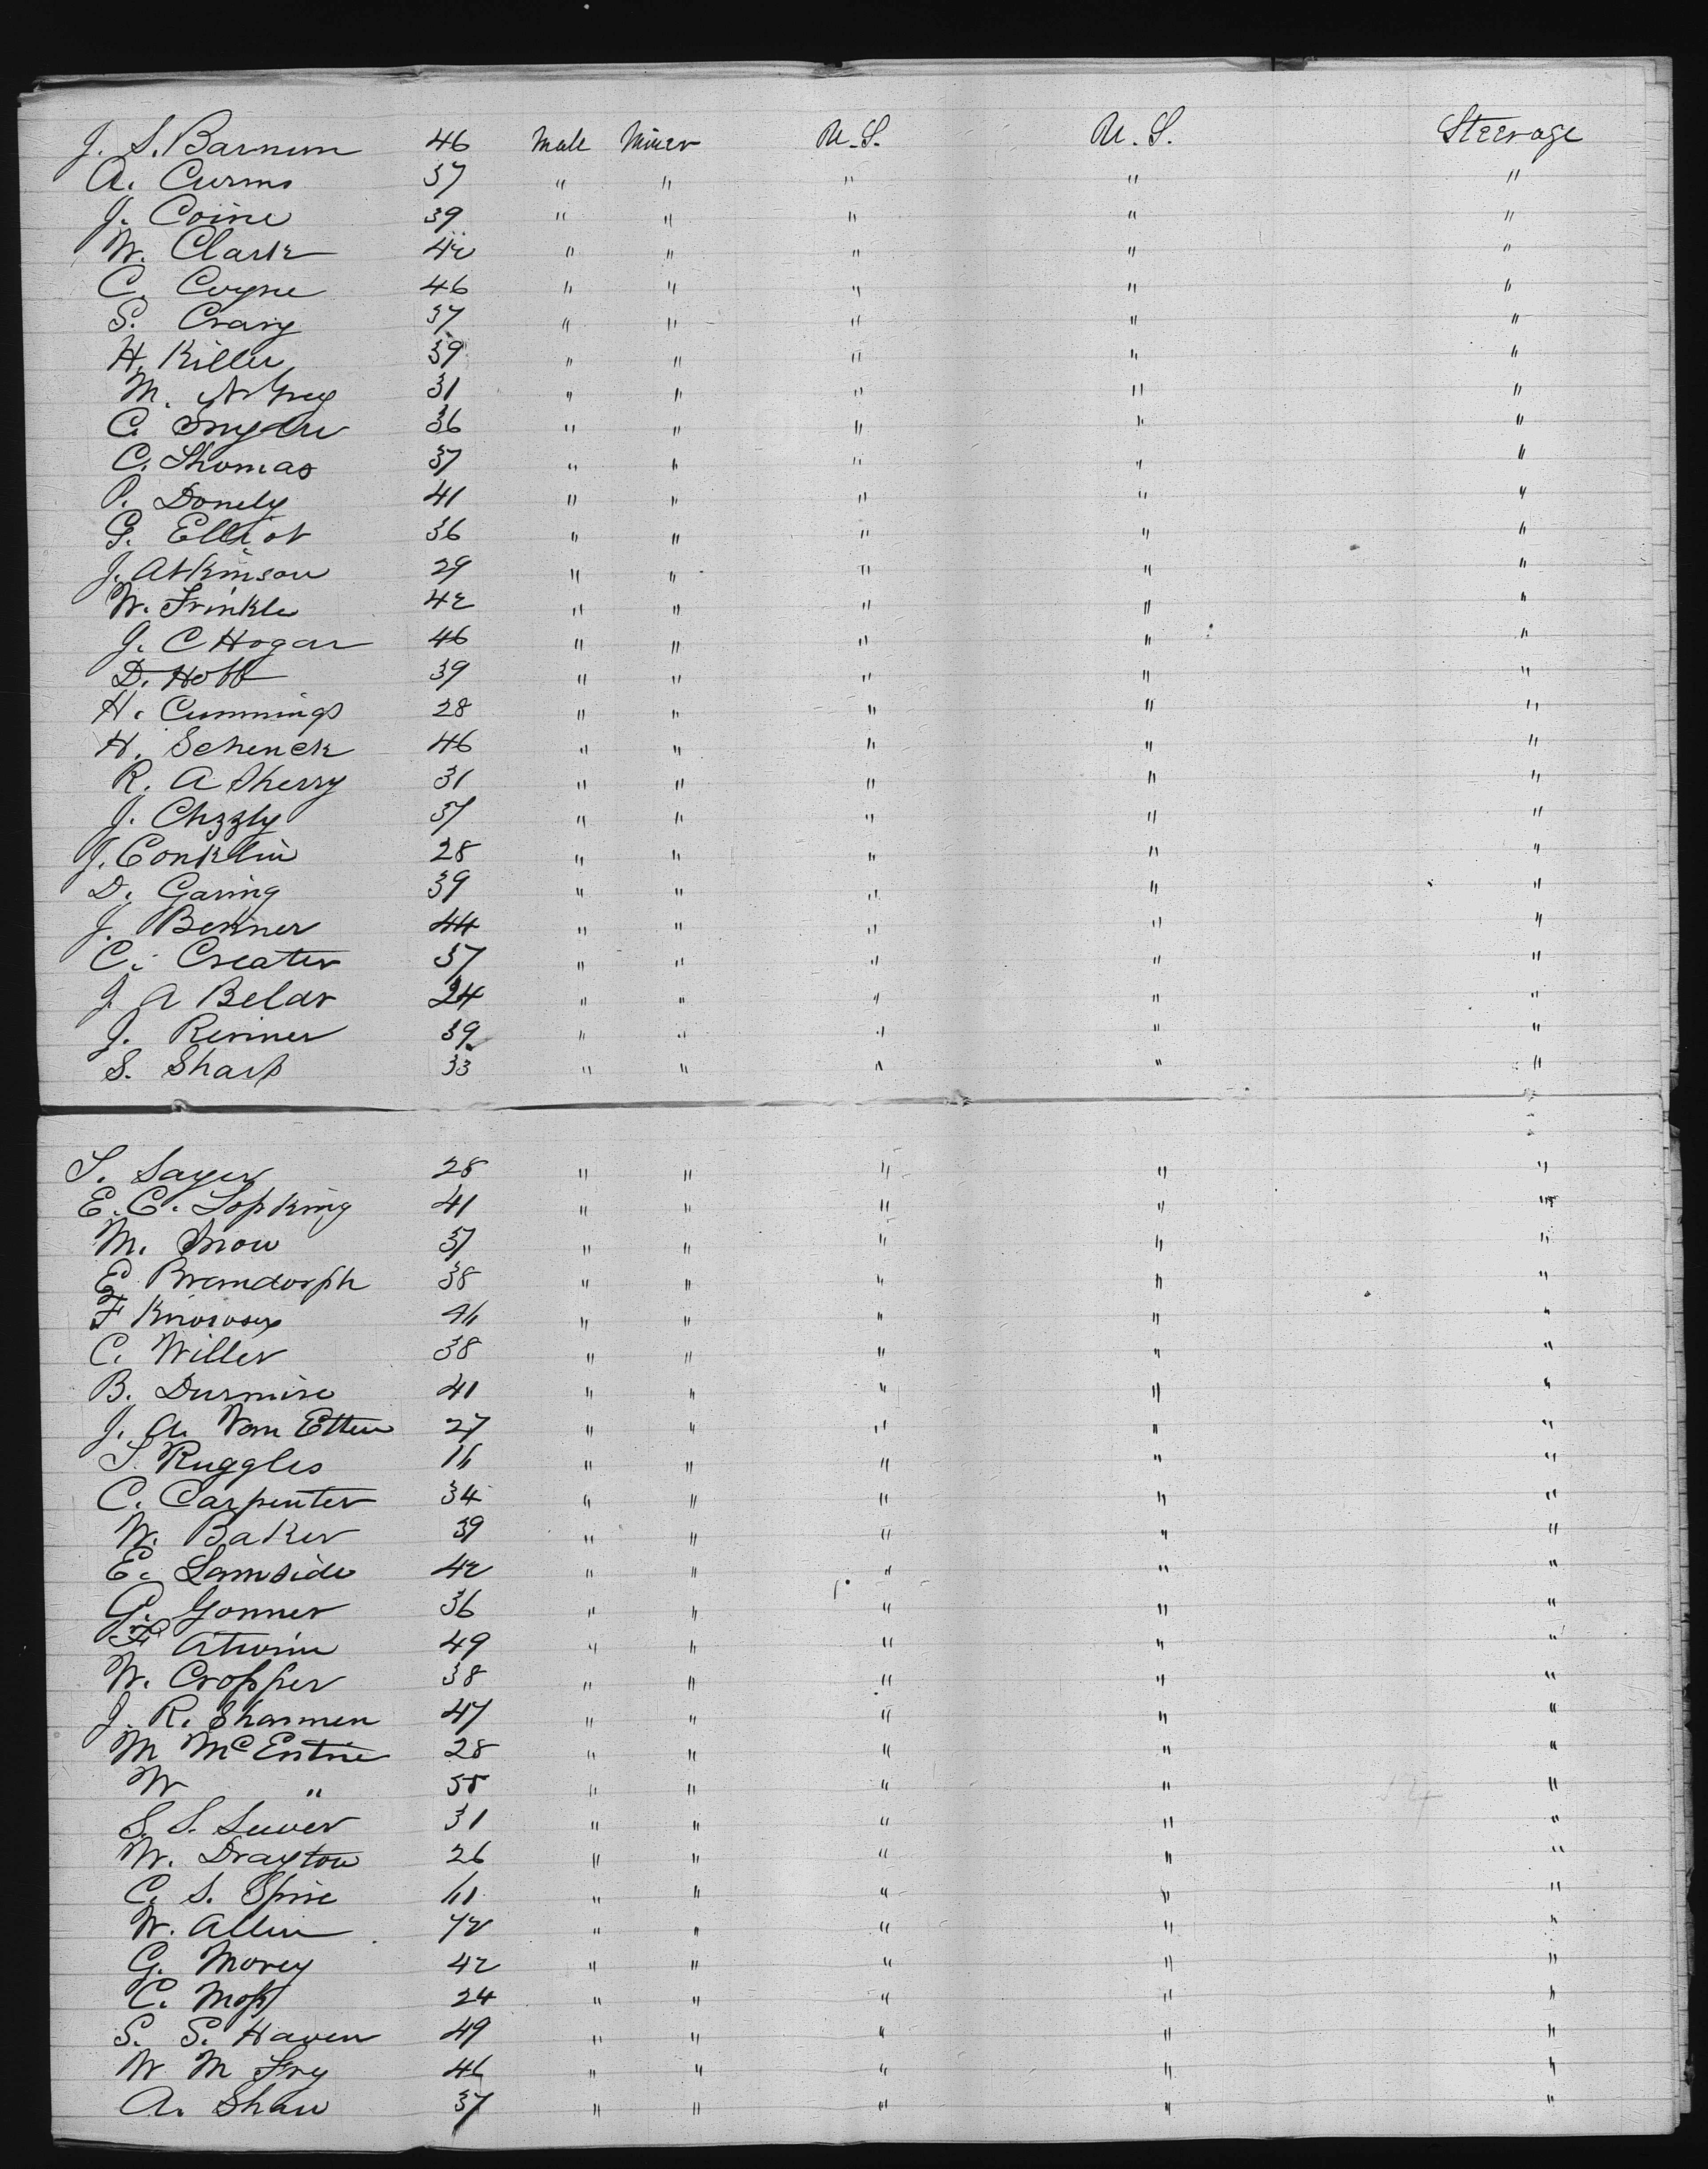 J. S. Barnum 46 Male Miner U.S. U.S. Steerage
A. Curms 37 " " " " "
J. Coine 39 " " " " "
W. Clark 42 " " " " "
C. Coyne 46 " " " " "
S. Crary 37 " " " " "
H. Killer 39 " " " " "
M. 31 " " " " "
C. Snyder 36 " " " " "
C. Thomas 37 " " " " "
P. Donely 41 " " " " "
G. Elliot 36 " " " " "
J. Atkinson 29 " " " " "
W. Frinkle 42 " " " " "
J. C Hogan 46 " " " " "
D. Hoff 39 " " " " "
H. Cummings 28 " " " " "
H. Schenck 46 " " " " "
R. A Sherry 31 " " " " "
J. Chzzly 37 " " " " "
J. Conklin 28 " " " " "
D. Garing 39 " " " " "
J. Benner 44 " " " " "
C. Creater 37 " " " " "
J. A Belar 24 " " " " "
J. Renner 39 " " " " "
S. Sharp 33 " " " " "
S. Sayer 28 " " " " "
E. C. Lopking 41 " " " " "
M. Snow 37 " " " " "
E Brandorph 38 " " " " "
F " " " " "
C. Willer 38 " " " " "
B. Dunmire 41 " " " " "
J. A. Van Etten 27 " " " " "
S. Ruggles 16 " " " " "
C. Carpenter 34 " " " " "
W. Baker 39 " " " " "
E. Lamside 42 " " " " "
G. Gonner 36 " " " " "
F Atwine 49 " " " " "
W. Cropper 38 " " " " "
J. R. Sharmen 47 " " " " "
M McEntire 28 " " " " "
W " " " " " "
S. S. Suver 31 " " " " "
W. Drayton 26 " " " " "
C. S. Spire " " " " "
W. Allen 42 " " " " "
G. Morey 42 " " " " "
C. Moss 24 " " " " "
S. S. Haven 49 " " " " "
W M Fry 46 " " " " "
A. Shaw 37 " " " " "